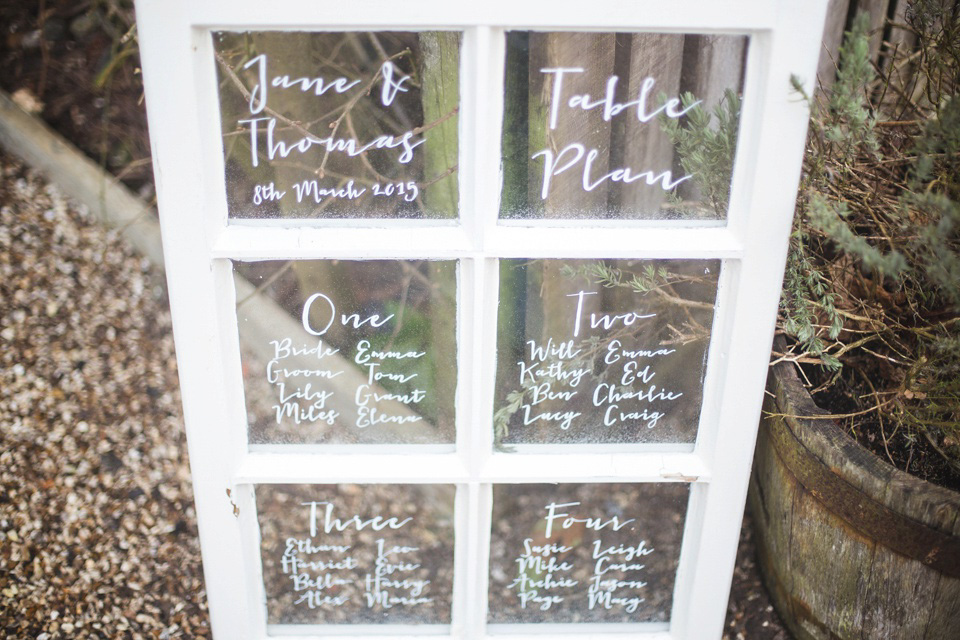 Jane &
Thomas
8th March 2015
Table
Plan
One
Bride Emma
Groom Tom
Lily Grant
Miles Elena
Two
Will Emma
Kathy Ed
Ben Charlie
Lucy Craig
Three
Ethan Leo
Harriet Evie
Bella Harry
Alex Maria
Four
Susie Leigh
Mike Cara
Archie Jason
Page Macy